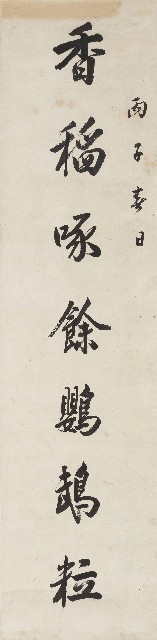 丙子春日
香稻啄餘鸚鵡粒